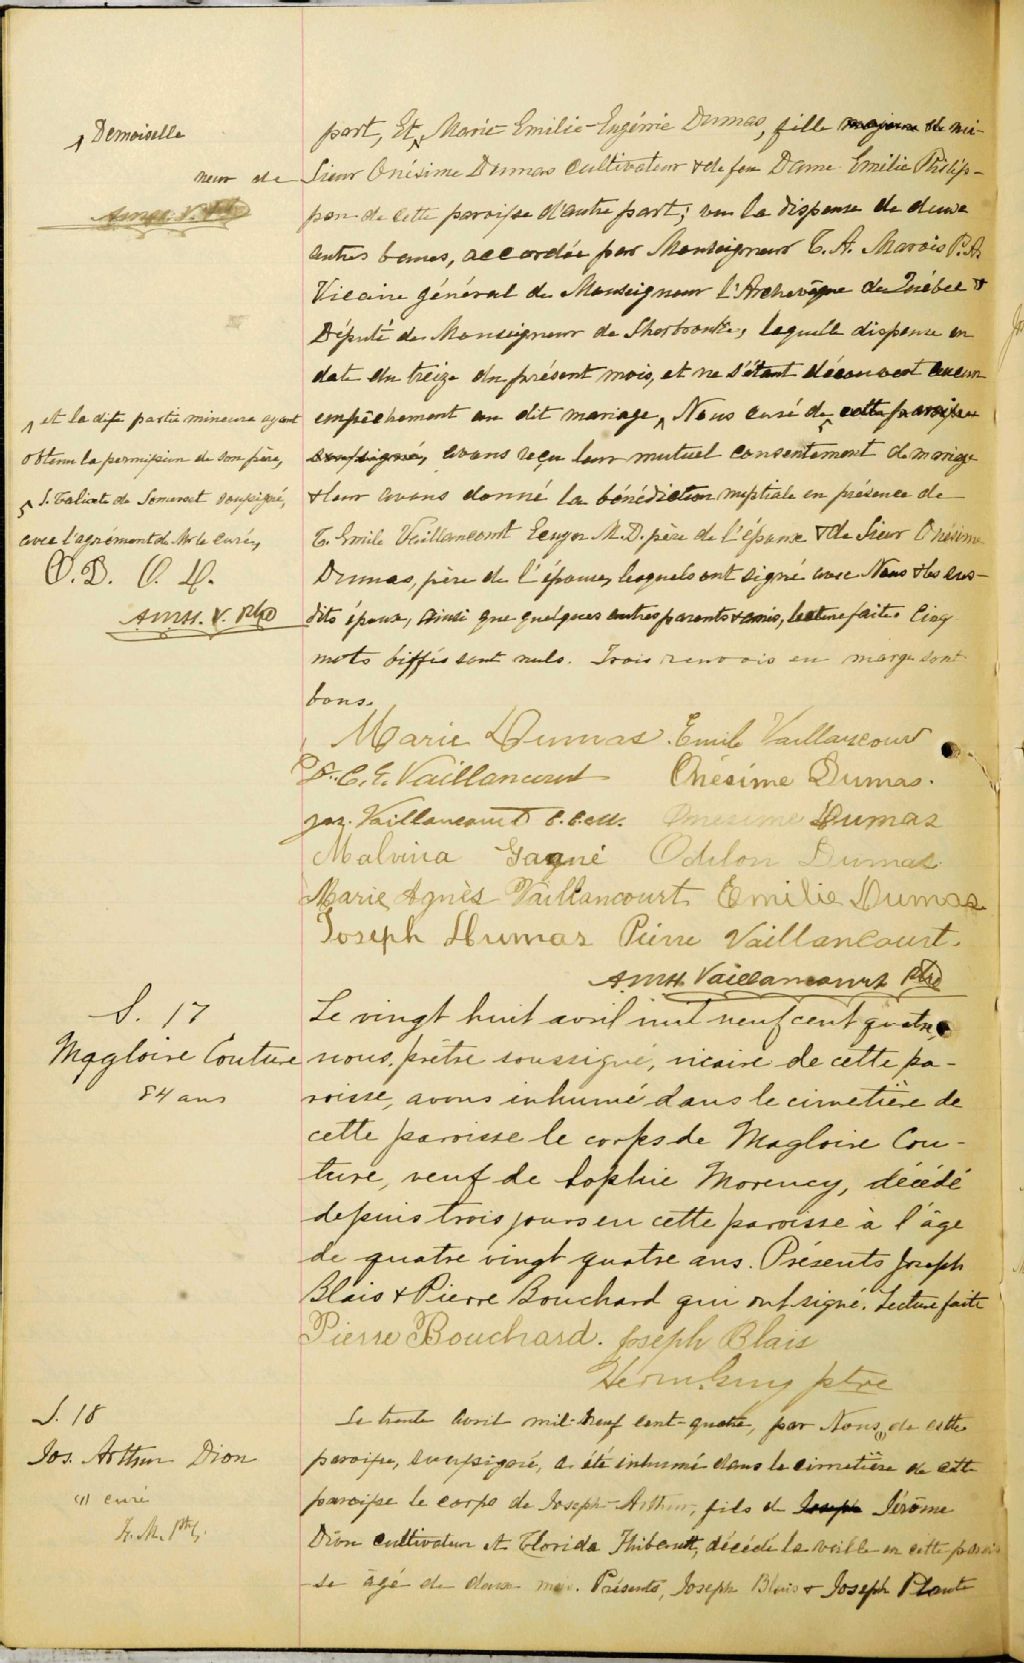 Demoiselle
neur de
part, Et Marie Emilie-Eugénie Dumas, fille majeure de mi-
Sieur Onésime Dumas cultivateur & de feu Dame Emilie Philip-
pon de cette paroisse d'autre part; vu la dispense de deux
autres bancs, accordée par Monseigneur C. A. Marois P. A.
Vicaire général de Monseigneur l'Archevêque de Québec &
Député de Monseigneur de Sherbrooke, laquelle dispense en
date du treize du présent mois, et ne s'étant découvert aucun
et la dite partie mineure ayant
obtenu la permission de son père,
S. Calixte de Somerset soussigné,
avec l'agrément de Mr le Curé,
O. D. E. V.
empêchement au dit mariage, Nous curé de cette paroisse
soussigné, avons reçu leur mutuel consentement de mariage
& leur avons donné la bénédiction nuptiale en présence de
C. Emile Vaillancourt Ecuyer M.D. père de l'époux & de Sieur Onésime
Dumas, père de l'épouse, lesquels ont signé avec Nous & les sus-
dits époux, ainsi que quelques autres parents & amis, lecture faite. Cinq
mots biffés sont nuls. Trois renvois en marge sont
bons.
Marie Dumas. Emile Vaillancourt
C. E. Vaillancourt Onésime Dumas.
Jos. Vaillancourt Onésime Dumas
Malvina Gagné Odilon Dumas
Marie Agnès Vaillancourt Emilie Dumas
Joseph Dumas Pierre Vaillancourt.
Vaillancourt Ptre
S. 17
Magloire Couture
84 ans
Le vingt huit avril mil neuf cent quatre,
nous, prêtre soussigné, vicaire de cette pa-
roisse, avons inhumé dans le cimetière de
cette paroisse le corps de Magloire Cou-
ture, veuf de Sophie Morency, décédé
depuis trois jours en cette paroisse à l'âge
de quatre vingt quatre ans. Présents Joseph
Blais & Pierre Bouchard qui ont signé. Lecture faite
Pierre Bouchard. Joseph Blais
ptre
S. 18
Jos. Arthur Dion
(1) curé
Le trente avril mil-neuf cent-quatre, par Nous (1) de cette
paroisse, soussigné, a été inhumé dans le cimetière de cette
paroisse le corps de Joseph-Arthur, fils de Joseph Jérôme
Dion cultivateur et Florida Thibault, décédé la veille en cette parois-
se âgé de deux mois. Présents, Joseph Blais & Joseph Plante